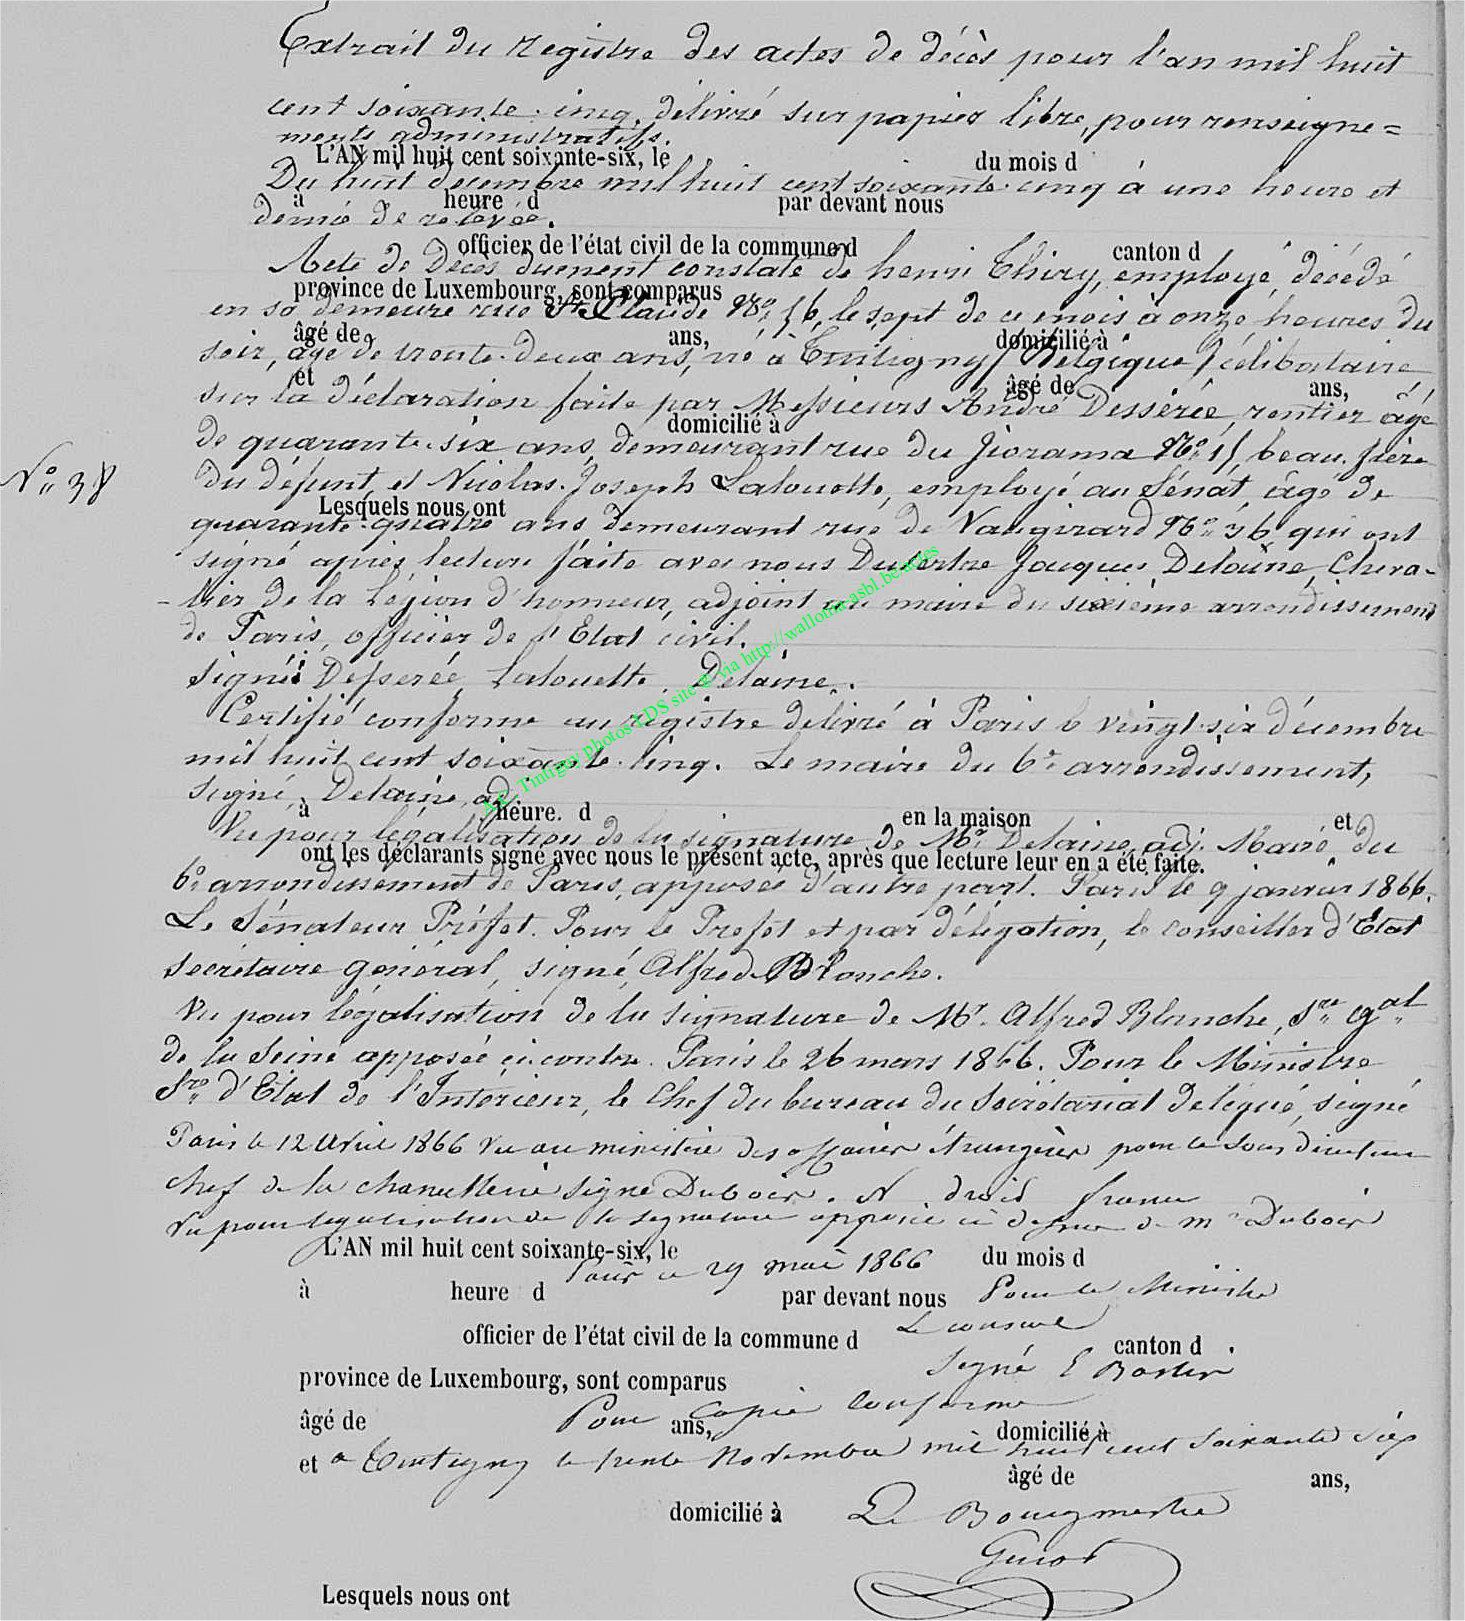 Extrait du registre des actes de décès pour l'an mil huit
cent soixante-cinq, délivré sur papier libre, pour renseigne=
ments administratifs.
L'AN mil huit cent soixante-six, le du mois d
Du huit décembre mil huit cent soixante-cinq à une heure et
à heure d par devant nous
demie de relevée.
officier de l'état civil de la commune d canton d
Acte de Décès duement constaté de henri Thiry, employé, décédé
province de Luxembourg, sont comparus
en sa demeure rue le sept de ce mois à onze heures du
âgé de ans, domicilié à
soir, âgé de trente-deux ans, né à Tintigny (Belgique) célibataire
et âgé de ans,
sur la déclaration faite par Messieurs André Desserée, rentier âgé
domicilié à
de quarante-six ans, demeurant rue du beau-frère
N° 38
du défunt, et Nicolas-Joseph Lalouette, employé au Sénat, âgé de
Lesquels nous ont
quarante-quatre ans demeurant rue de Vaugirard N° 36 qui ont
signé après lecture faite avec nous Jacques Delaine, Cheva-
-lier de la Légion d'honneur, adjoint au maire du sixième arrondissement
de Paris, officier de l'Etat civil.
Signé: Desserée, Lalouette, Delaine.
Certifié conforme au registre délivré à Paris le vingt-six décembre
mil huit cent soixante-cinq. Le maire du 6e arrondissement,
signé, Delaine, adj.
à heure. d en la maison et
Vu pour légalisation de la signature de Mr Delaine, adj. Maire du
ont les déclarants signé avec nous le présent acte, après que lecture leur en a été faite.
6e arrondissement de Paris, apposée d'autre part. Paris le 9 janvier 1866.
Le Sénateur Préfet. Pour le Préfet et par délégation, le conseiller d'Etat
secrétaire général, signé, Alfred Blanche.
Vu pour légalisation de la signature de Mr. Alfred Blanche, Sre gal
de la Seine apposée ci contre. Paris le 26 mars 1866. Pour le Ministre
Sre d'Etat de l'Intérieur, le Chef du bureau du Secrétariat délégué, signé
Paris le 12 Avril 1866 Vu au ministère des affaires étrangères pour le sous directeur
chef de la chancellerie signé Dubois. droit
Vu pour légalisation de la signature apposée ci dessus de Mr Dubois
L'AN mil huit cent soixante-six, le du mois d
Paris le 29 mai 1866
à heure d par devant nous
Pour le Ministre
officier de l'état civil de la commune d canton d
Le consul
signé
province de Luxembourg, sont comparus
Pour Copie Conforme
âgé de ans, domicilié à
et à Tintigny le trente Novembre mil huit cent soixante six
âgé de ans,
domicilié à
Le Bourgmestre
Guiot
Lesquels nous ont
A.C. Tintigny photos LDS site © via http://wallonia-asbl.be/actes